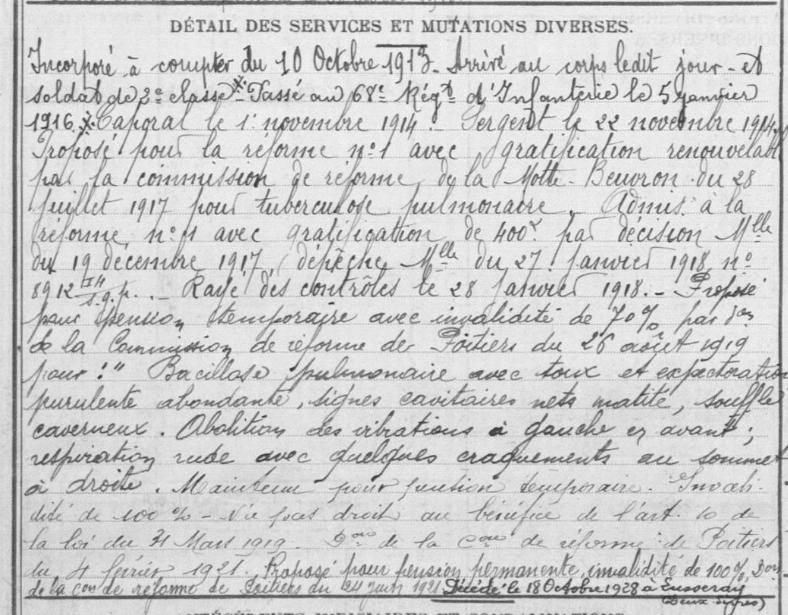 DÉTAIL DES SERVICES ET MUTATIONS DIVERSES.
Incorporé à compter du 10 Octobre 1913. Arrivé au corps ledit jour et
soldat de 2e classe. Passé au 68e Régt d'Infanterie le 5 janvier
1916. Caporal le 1er novembre 1914. Sergent le 22 novembre 1914.
Proposé pour la réforme n°1 avec gratification renouvelable
par la commission de réforme de la Motte-Beuvron du 28
juillet 1917 pour tuberculose pulmonaire. Admis à la
réforme n°1 avec gratification de 400f par décision Mlle
du 19 décembre 1917 (dépêche Mlle du 27 janvier 1918 n°
8912 s.g.p. - Rayé des contrôles le 28 janvier 1918. - Proposé
pour pension temporaire avec invalidité de 70% par don
de la Commission de réforme de Poitiers du 26 août 1919
pour : " Bacillose pulmonaire avec toux et expectoration
purulente abondante, signes cavitaires nets matité, souffle
caverneux. Abolition des vibrations à gauche en avant ;
respiration rude avec quelques craquements au sommet
à droite. Maintenu pour pension temporaire. Invali-
dité de 100% - N'a pas droit au bénéfice de l'art. 10 de
la loi du 31 Mars 1919. Don de la Con de réforme de Poitiers
du 4 février 1921. Proposé pour pension permanente invalidité de 100%, Don
de la Con de réforme de Poitiers du 24 juin 1921 Décédé le 18 Octobre 1928 à
(Deux-Sèvres)